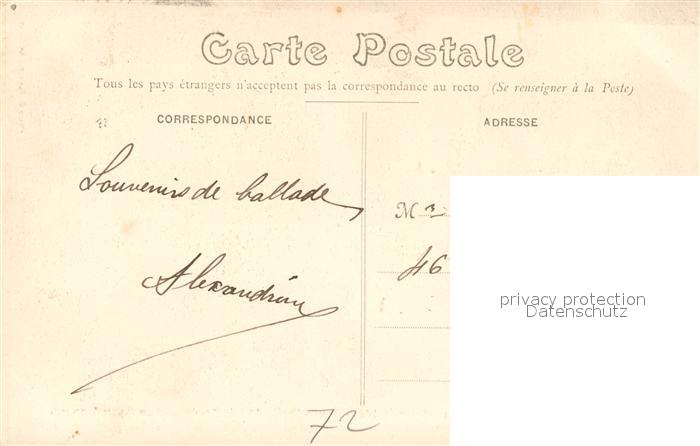 Carte Postale
Tous les pays étrangers n'acceptent pas la correspondance au recto (Se renseigner à la Poste)
CORRESPONDANCE
ADRESSE
Souvenirs de ballade
Alexandrine
Mr
46
privacy protection
Datenschutz
72